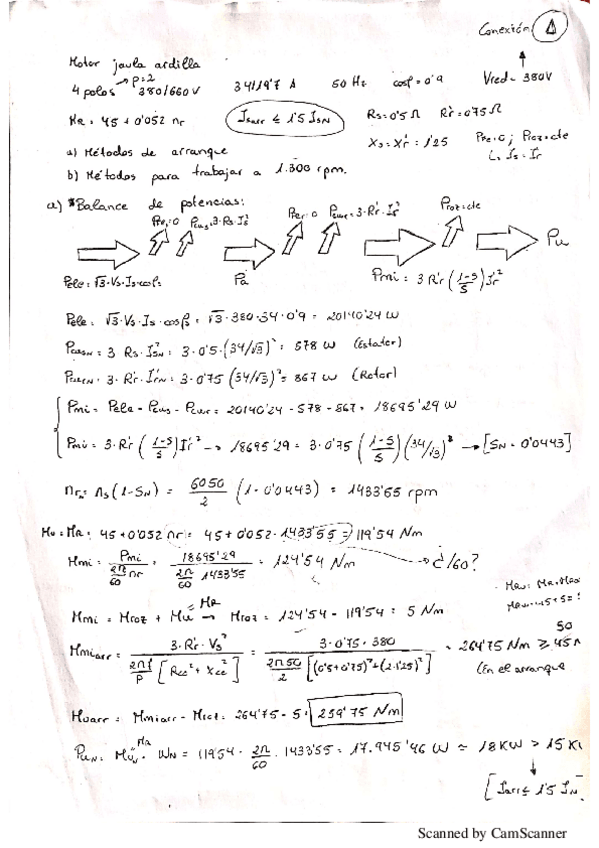 Conexión Δ
Motor jaula ardilla
4 polos → p=2 380/660V 34/19'7 A 50 Hz cosφ=0'9 Vred=380V
MR = 45 + 0'052 nr Isarr ≤ 1'5 ISN Rs=0'5 Ω Rr'=0'75 Ω
a) Métodos de arranque Xs=Xr'=1'25 PFe=0 ; Proz=cte
b) Métodos para trabajar a 1.300 rpm. Is=Ir
a) *Balance de potencias:
PFe=0 Pcus=3·Rs·Is² PFer=0 Pcur=3·Rr'·Ir² Proz=cte
Pu
Pele=√3·Vs·Is·cosφ Pa Pmi=3Rr'(1-S/S)Ir²
Pele = √3·Vs·Is·cosφs = √3·380·34·0'9 = 20140'24 W
PcusN = 3 Rs·ISN² = 3·0'5·(34/√3)² = 578 W (Estator)
PcurN = 3·Rr'·IrN² = 3·0'75(34/√3)² = 867 W (Rotor)
Pmi = Pele - Pcus - Pcur = 20140'24 - 578 - 867 = 18695'29 W
Pmi = 3·Rr'(1-S/S)Ir'² → 18695'29 = 3·0'75(1-S/S)(34/√3)² → [SN=0'0443]
nrN = ns(1-SN) = 60·50/2 (1-0'0443) = 1433'55 rpm
Mu=MR= 45+0'052 nr = 45+0'052·1433'55 = 119'54 Nm
Mmi = Pmi/(2π/60 nr) = 18695'29/(2π/60 1433'55) = 124'54 Nm → ¿/60?
Mmi = Mroz + Mu → Mroz = 124'54 - 119'54 = 5 Nm
MR
50
Mmiarr = 3·Rr'·Vs²/(2πf/P [Rcc²+Xcc²]) = 3·0'75·380/(2π50/2 [(0'5+0'75)²+(2·1'25)²]) = 264'75 Nm ≥ 45
(En el arranque
Muarr = Mmiarr - Mroz = 264'75 - 5 = 259'75 Nm
PuN = MuN·WN = 119'54 · 2π/60 · 1433'55 = 17.945'46 W ≃ 18KW > 15
MR
[Isarr ≤ 1'5 IN
Scanned by CamScanner